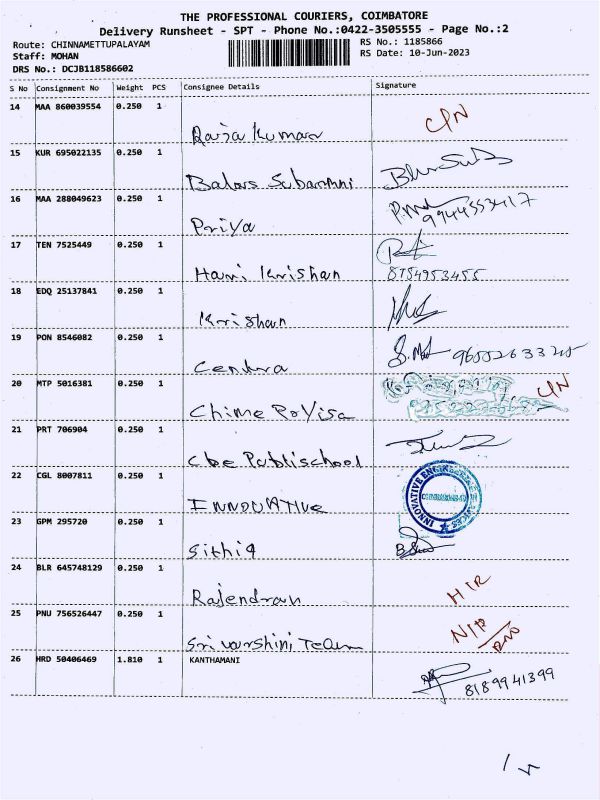 THE PROFESSIONAL COURIERS, COIMBATORE
Delivery Runsheet - SPT - Phone No.:0422-3505555 - Page No.:2
Route: CHINNAMETTUPALAYAM
RS No.: 1185866
Staff: MOHAN
RS Date: 10-Jun-2023
DRS No.: DCJB118586602
S No Consignment No Weight PCS Consignee Details Signature
14 MAA 860039554 0.250 1
Raja Kumar
15 KUR 695022135 0.250 1
16 MAA 288049623 0.250 1
Priya 9944553417
17 TEN 7525449 0.250 1
Hari Krishan 8754953455
18 EDQ 25137841 0.250 1
Krishan
19 PON 8546082 0.250 1
20 MTP 5016381 0.250 1
21 PRT 706904 0.250 1
Cbe Publischool
22 CGL 8007811 0.250 1
INNOVATIVE
INNOVATIVE ENGINEERING
23 GPM 295720 0.250 1
24 BLR 645748129 0.250 1
Rajendran
25 PNU 756526447 0.250 1
Sri varshini Team
26 HRD 50406469 1.810 1 KANTHAMANI
8189941399